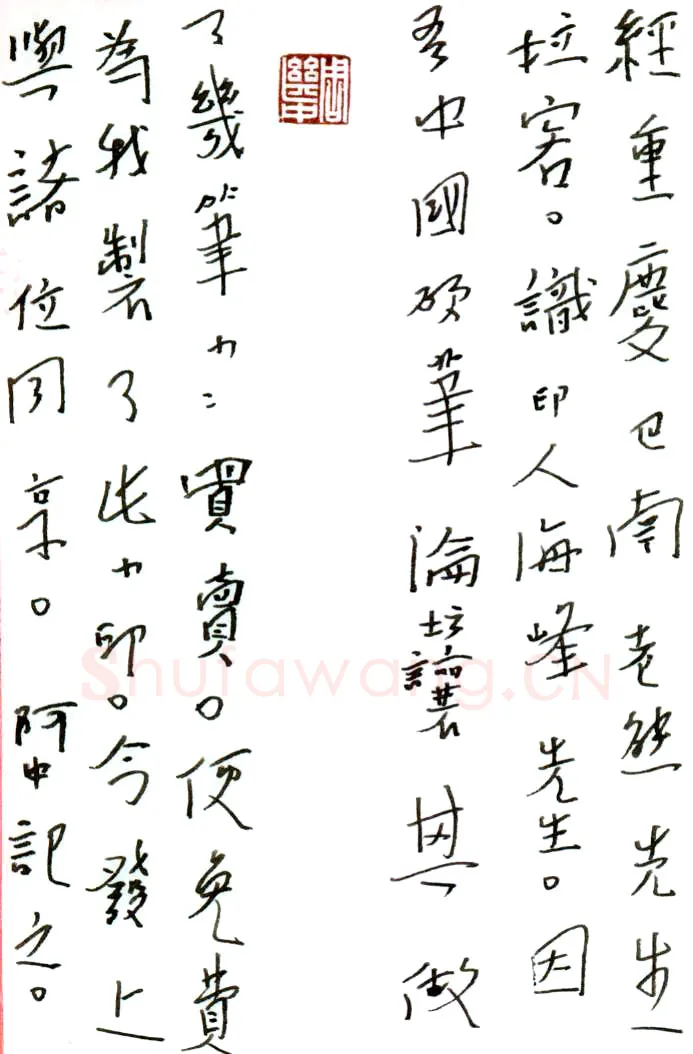 經重慶巴南老熊先生
拉客。識印人海峰先生。因
吾中國硬筆論坛其做
了幾筆小小買賣。便免費
為我製了此小印。今發上
與諸位同享。阿中記之。
Shufawang.CN